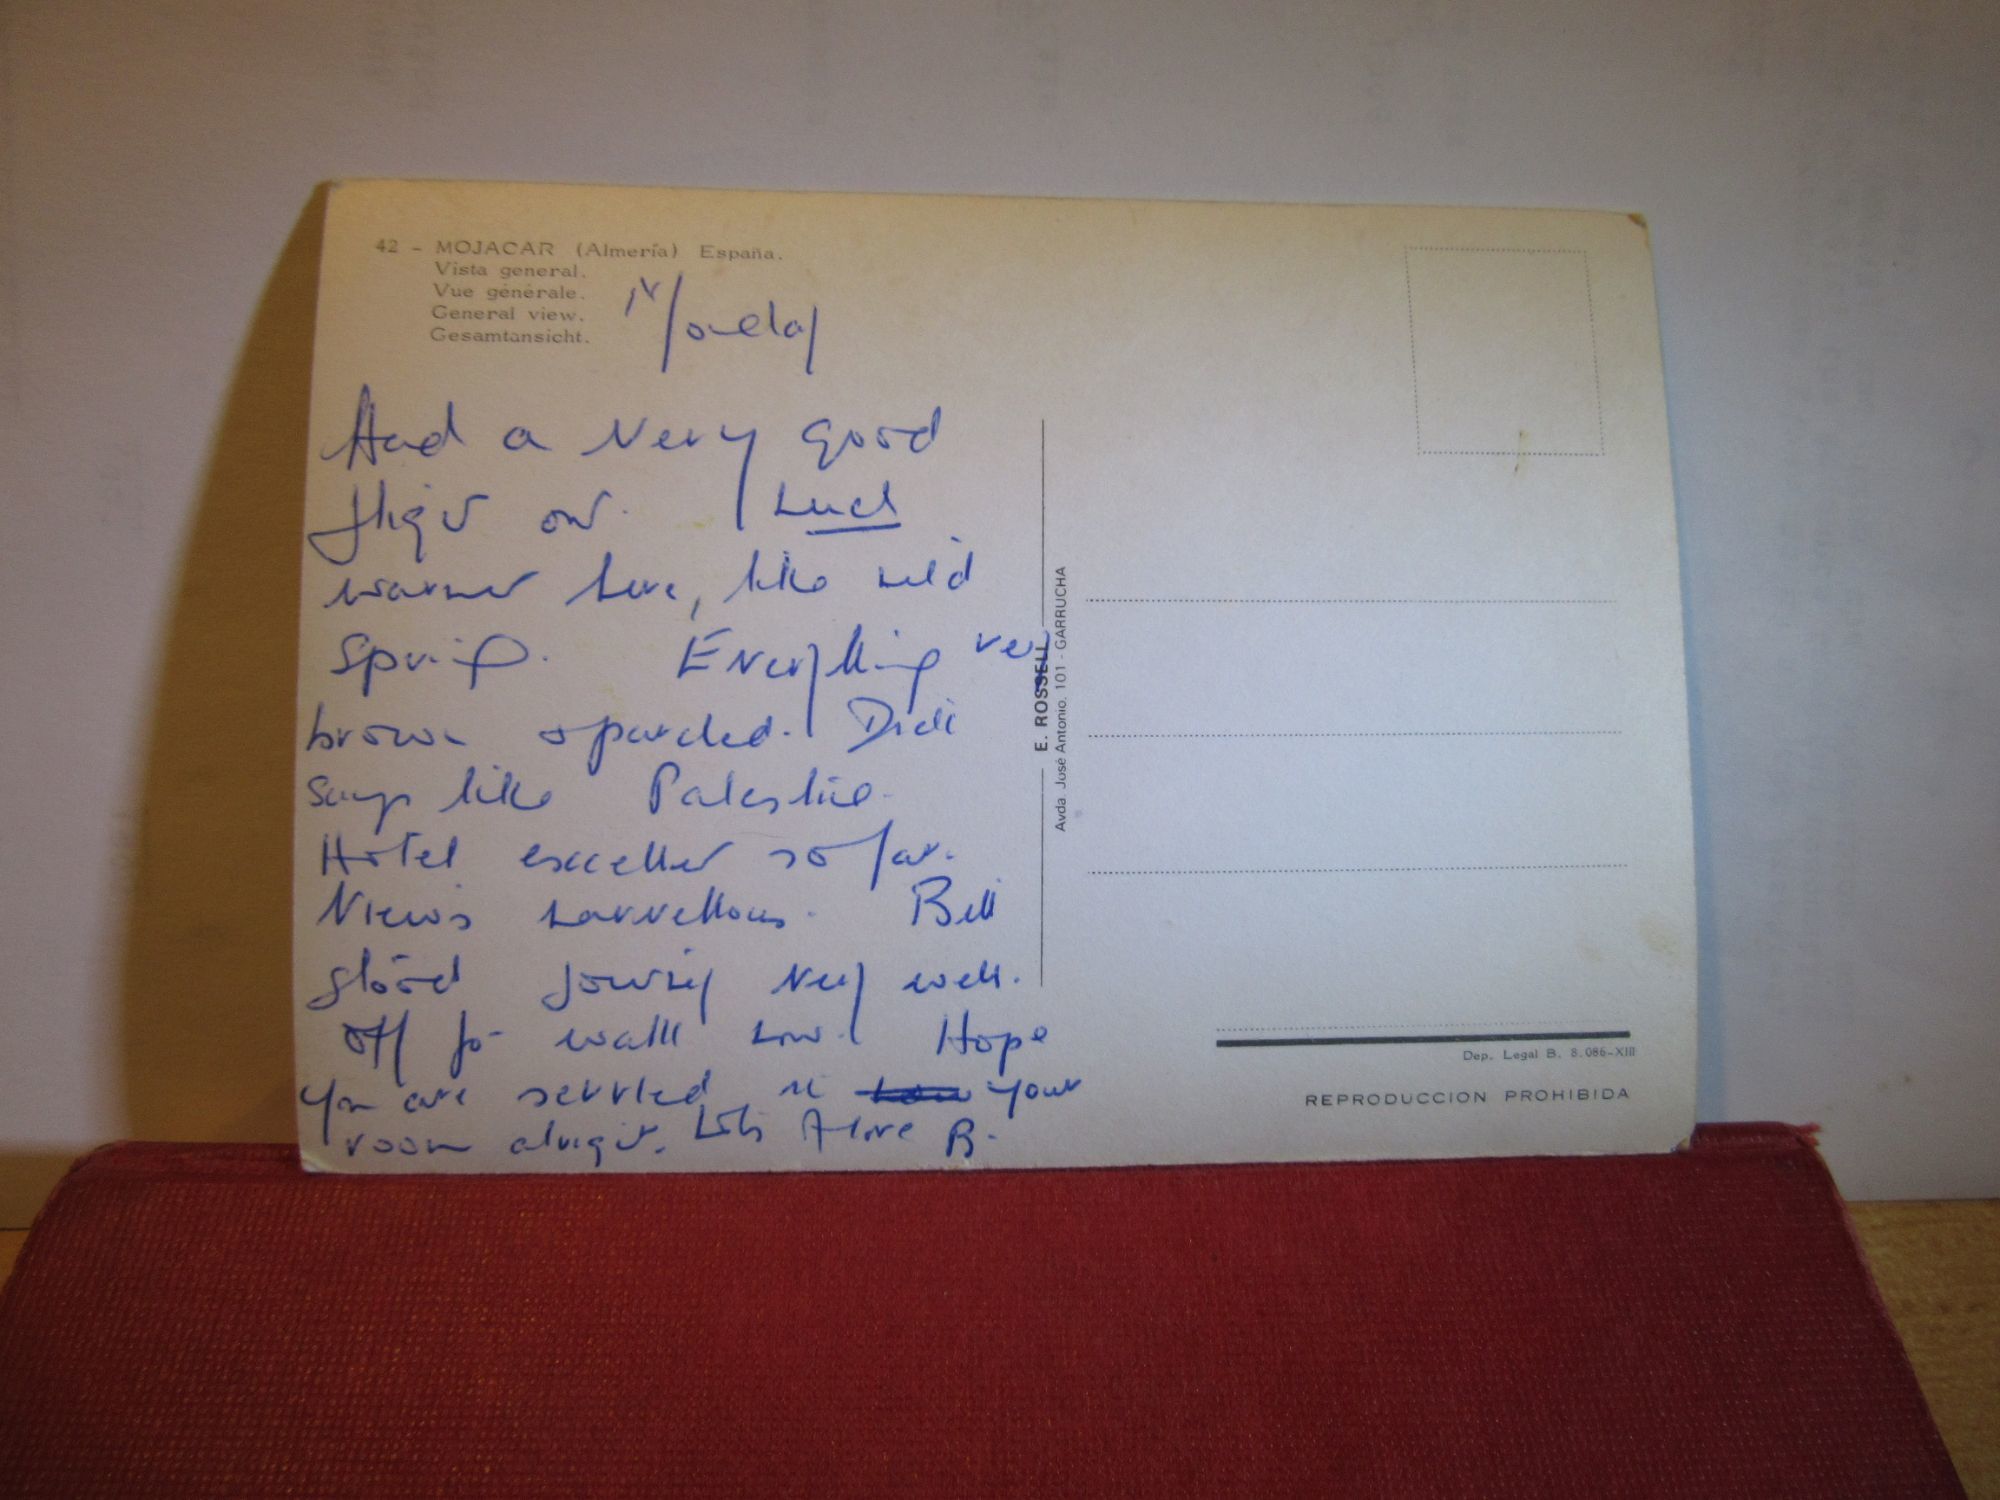 42 - MOJACAR (Almería) España.
Vista general.
Vue générale.
General view.
Gesamtansicht.
Monday
Had a very good
flight out. Much
warmer here, like mild
Spring. Everything very
brown & parched. Dick
says like Palestine.
Hotel excellent so far.
Views marvellous. Bill
stood journey very well.
Off for walk now. Hope
you are settled in your
room alright. Lots of love B.
E. ROSSELL
Avda. José Antonio, 101 - GARRUCHA
Dep. Legal B. 8.086-XIII
REPRODUCCION PROHIBIDA